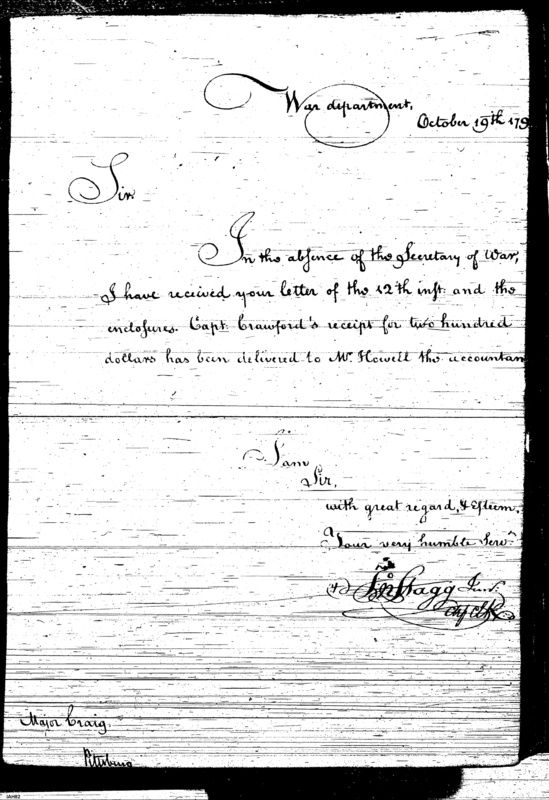 War department,
October 19th 179
Sir.
In the absence of the Secretary of War,
I have received your letter of the 12th inst. and the
enclosures. Capt. Crawford's receipt for two hundred
dollars has been delivered to Mr. Howell the accountan
I am
Sir,
with great regard, & Esteem,
Your very humble Servt.
Jno Stagg Junr.
Chf Clk
Major Craig.
Pittsburg